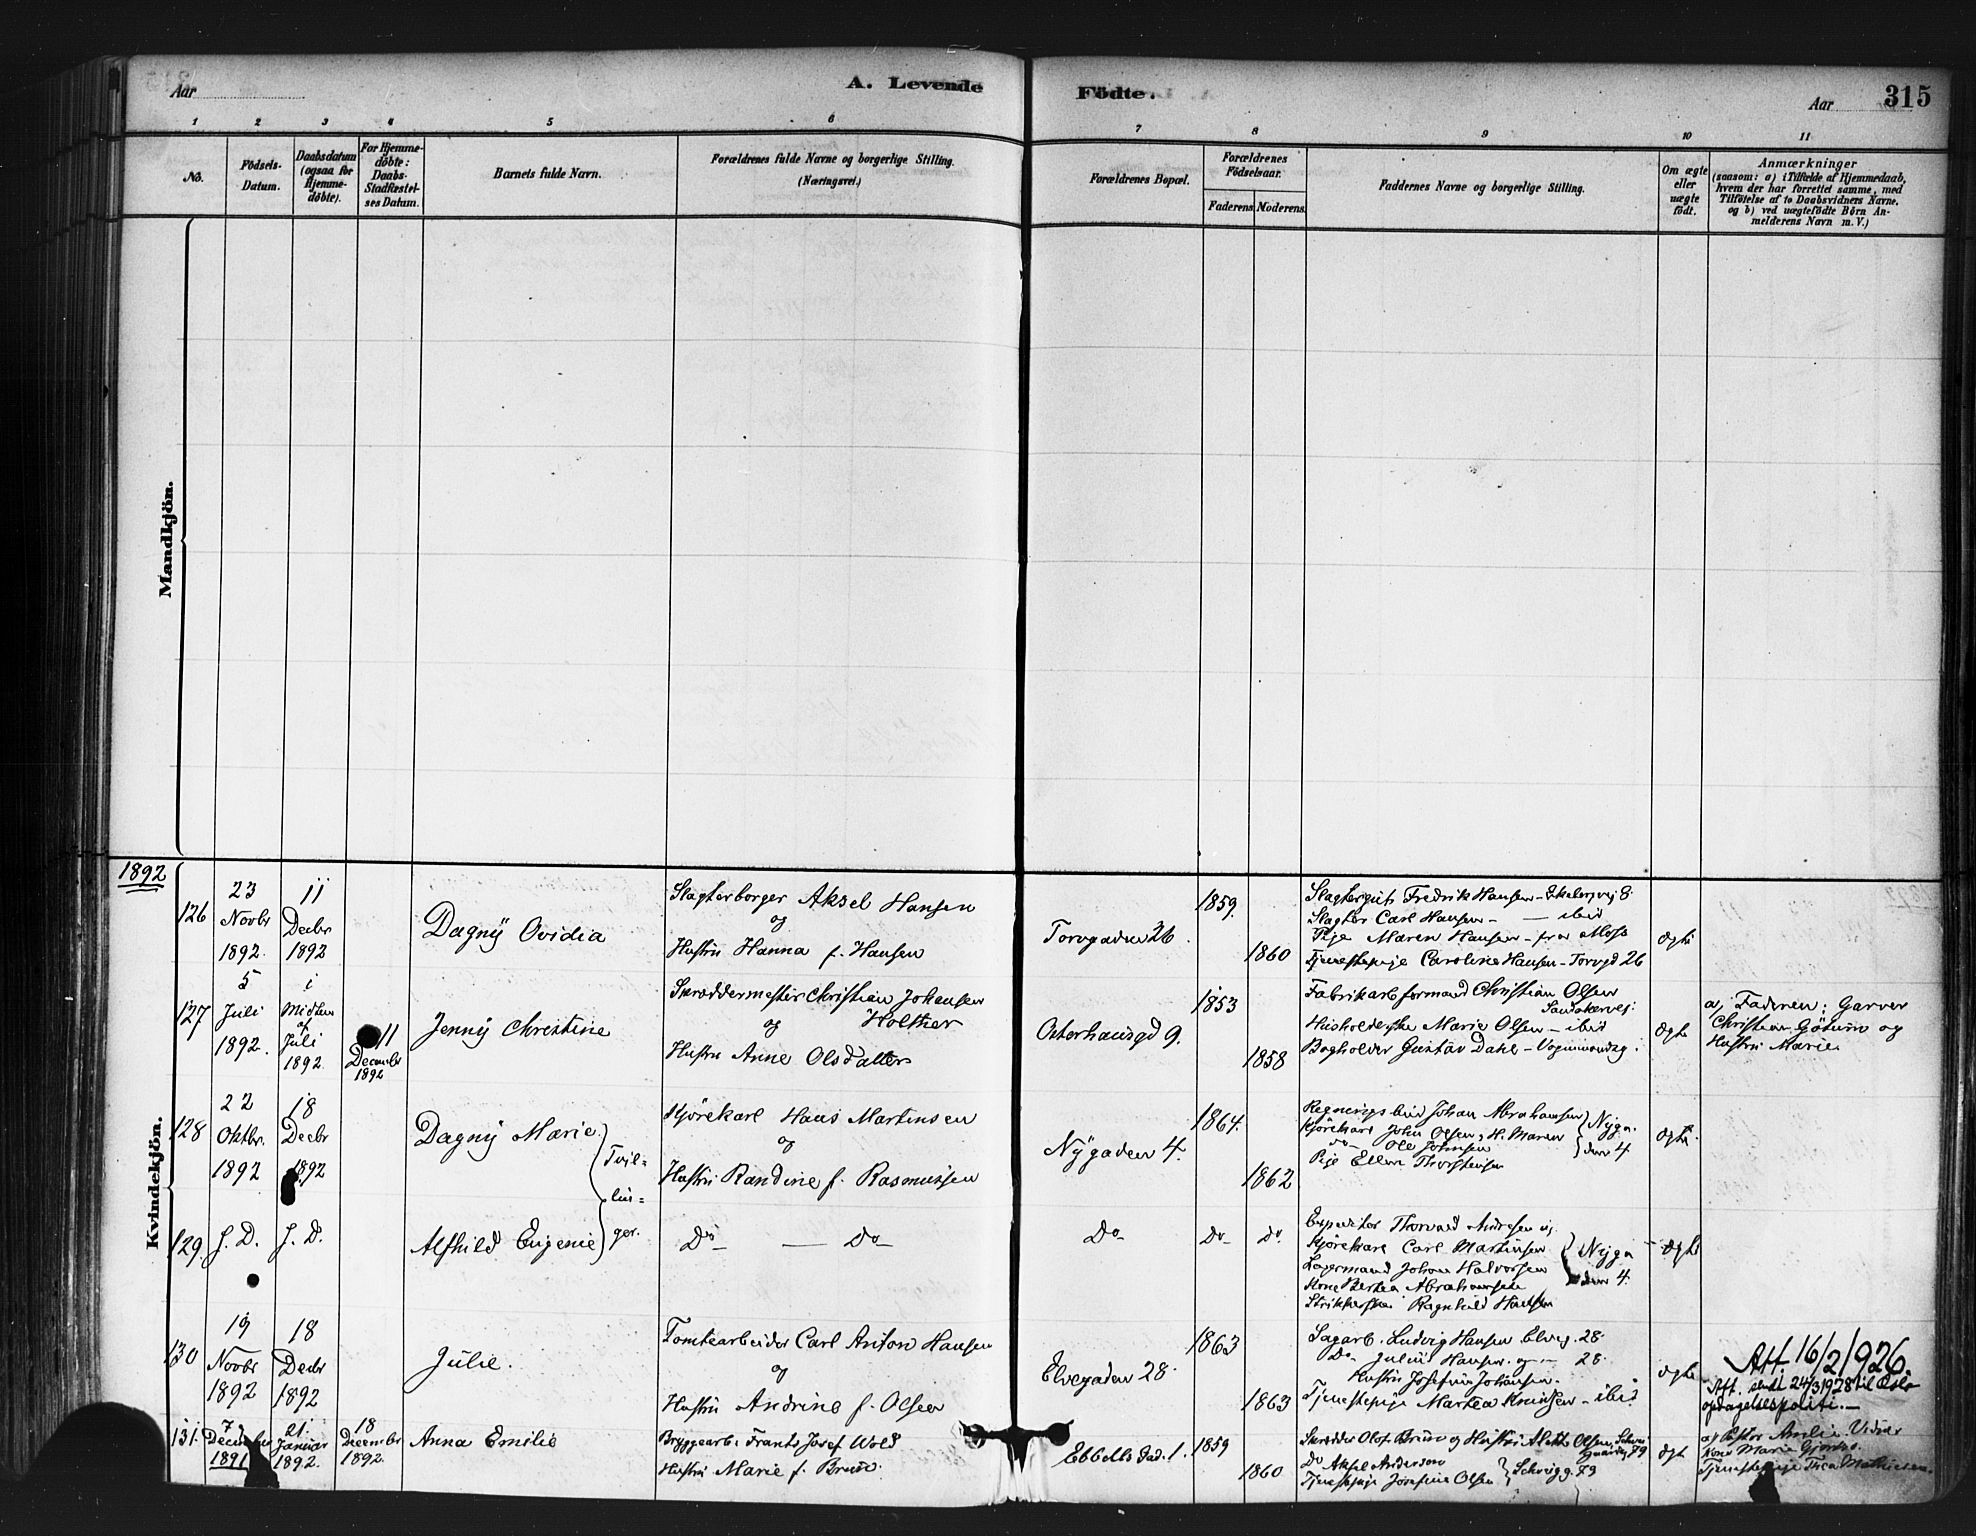 Aar
A. Levende
Födte.
Aar
315
1 2 3 4 5 6 7 8 9 10 11
No.
Födsels-
Datum.
Daabsdatum
(ogsaa for
Hjemme-
døbte).
For Hjemme-
døbte:
Daabs-
Stadfæstel-
ses Datum.
Barnets fulde Navn.
Forældrenes fulde Navne og borgerlige Stilling.
(Næringsvei.)
Forældrenes Bopæl.
Forældrenes
Fødselsaar.
Faderens
Moderens
Faddernes Navne og borgerlige Stilling.
Om ægte
eller
uægte
født.
Anmærkninger
(saasom: a) i Tilfælde af Hjemmedaab,
hvem der har forrettet samme, med
Tilføielse af to Daabsvidners Navne.
og b) ved uægtefødte Børn An-
melderens Navn m. V.)
Mandkjön.
Kvindekjön.
1892
126
23
Novbr
1892.
11
Decbr
1892
Dagny Ovidia
Slagterborger Aksel Hansen
og
Hustru Hanna f. Hansen
Torvgaden 26
1859.
1860
Fredrik Hansen
Slagter Carl Hansen - — ibid
Pige Maren Hansen - fra Moss
Tjenestepige Caroline Hansen - Torvgd 26
ægte
127
5
Juli
1892.
i
Midten
af
Juli
1892
11
Decembr
1892
Jenny Christine
Skræddermester Christian Johansen
og Holther
Hustru Anne Olsdatter
Osterhausgd 9.
1853
1858
Fabrikarb formand Christian Olsen
Sandakervej
Marie Olsen - ibid
Bogholder Gustav Dahl -
ægte
a, Faderen: Garver
Christian og
Hustru Marie.
128
22
Oktbr.
1892
18
Decbr
1892
Dagny Marie.
Tvil=
lin=
ger.
Kjörekarl Hans Martinsen
og
Hustru Randine f. Rasmussen
Nygaden 4.
1864.
1862
Johan Abrahamsen
Kjörekarl John Olsen, H. Maren
do Ole Johnsen
Pige Ellen Thorstensen
Nyga.
den 4
ægte.
129
f. D.
f. D.
Alfhild Eugenie
Do — Do
Do
Do
Do
Expeditør Thorvald Andresen
Kjörekarl Carl Martinsen
Lagermand Johan Halvorsen
Kone Berthea Abrahamsen
Ragnhild Hansen
Nyga
den 4.
ægte
130
19
Novbr
1892
18
Decbr
1892
Julie.
Tomtearbeider Carl Anton Hansen
og
Hustru Andrine f. Olsen
Elvegaden 28.
1863
1863
Sagarb. Ludvig Hansen Elveg. 28.
Do Julius Hansen og — 28.
Hustru Josefine Johansen.
Tjenestepige Martea Knudsen - ibid
ægte
Att. 16/2 1926.
Att. sendt 24/3 1928 til Oslo
opdagelsespoliti. —
131.
7
December
1891
21.
Januar
1892.
18
Decembr
1892.
Anna Emilie
Bryggearb. Frants Josef Wold
Hustru Marie f. Bruun.
Ebbells Gad. 1.
1859
1860
Skrædder Olof Bruun og Hustru Alette Olsen,
Do Aksel Andersen
Tjenestepige Josefine Olsen
Schvigg. 79
ægt
Kone Marie
Tjenestepige Thea Mathisen.